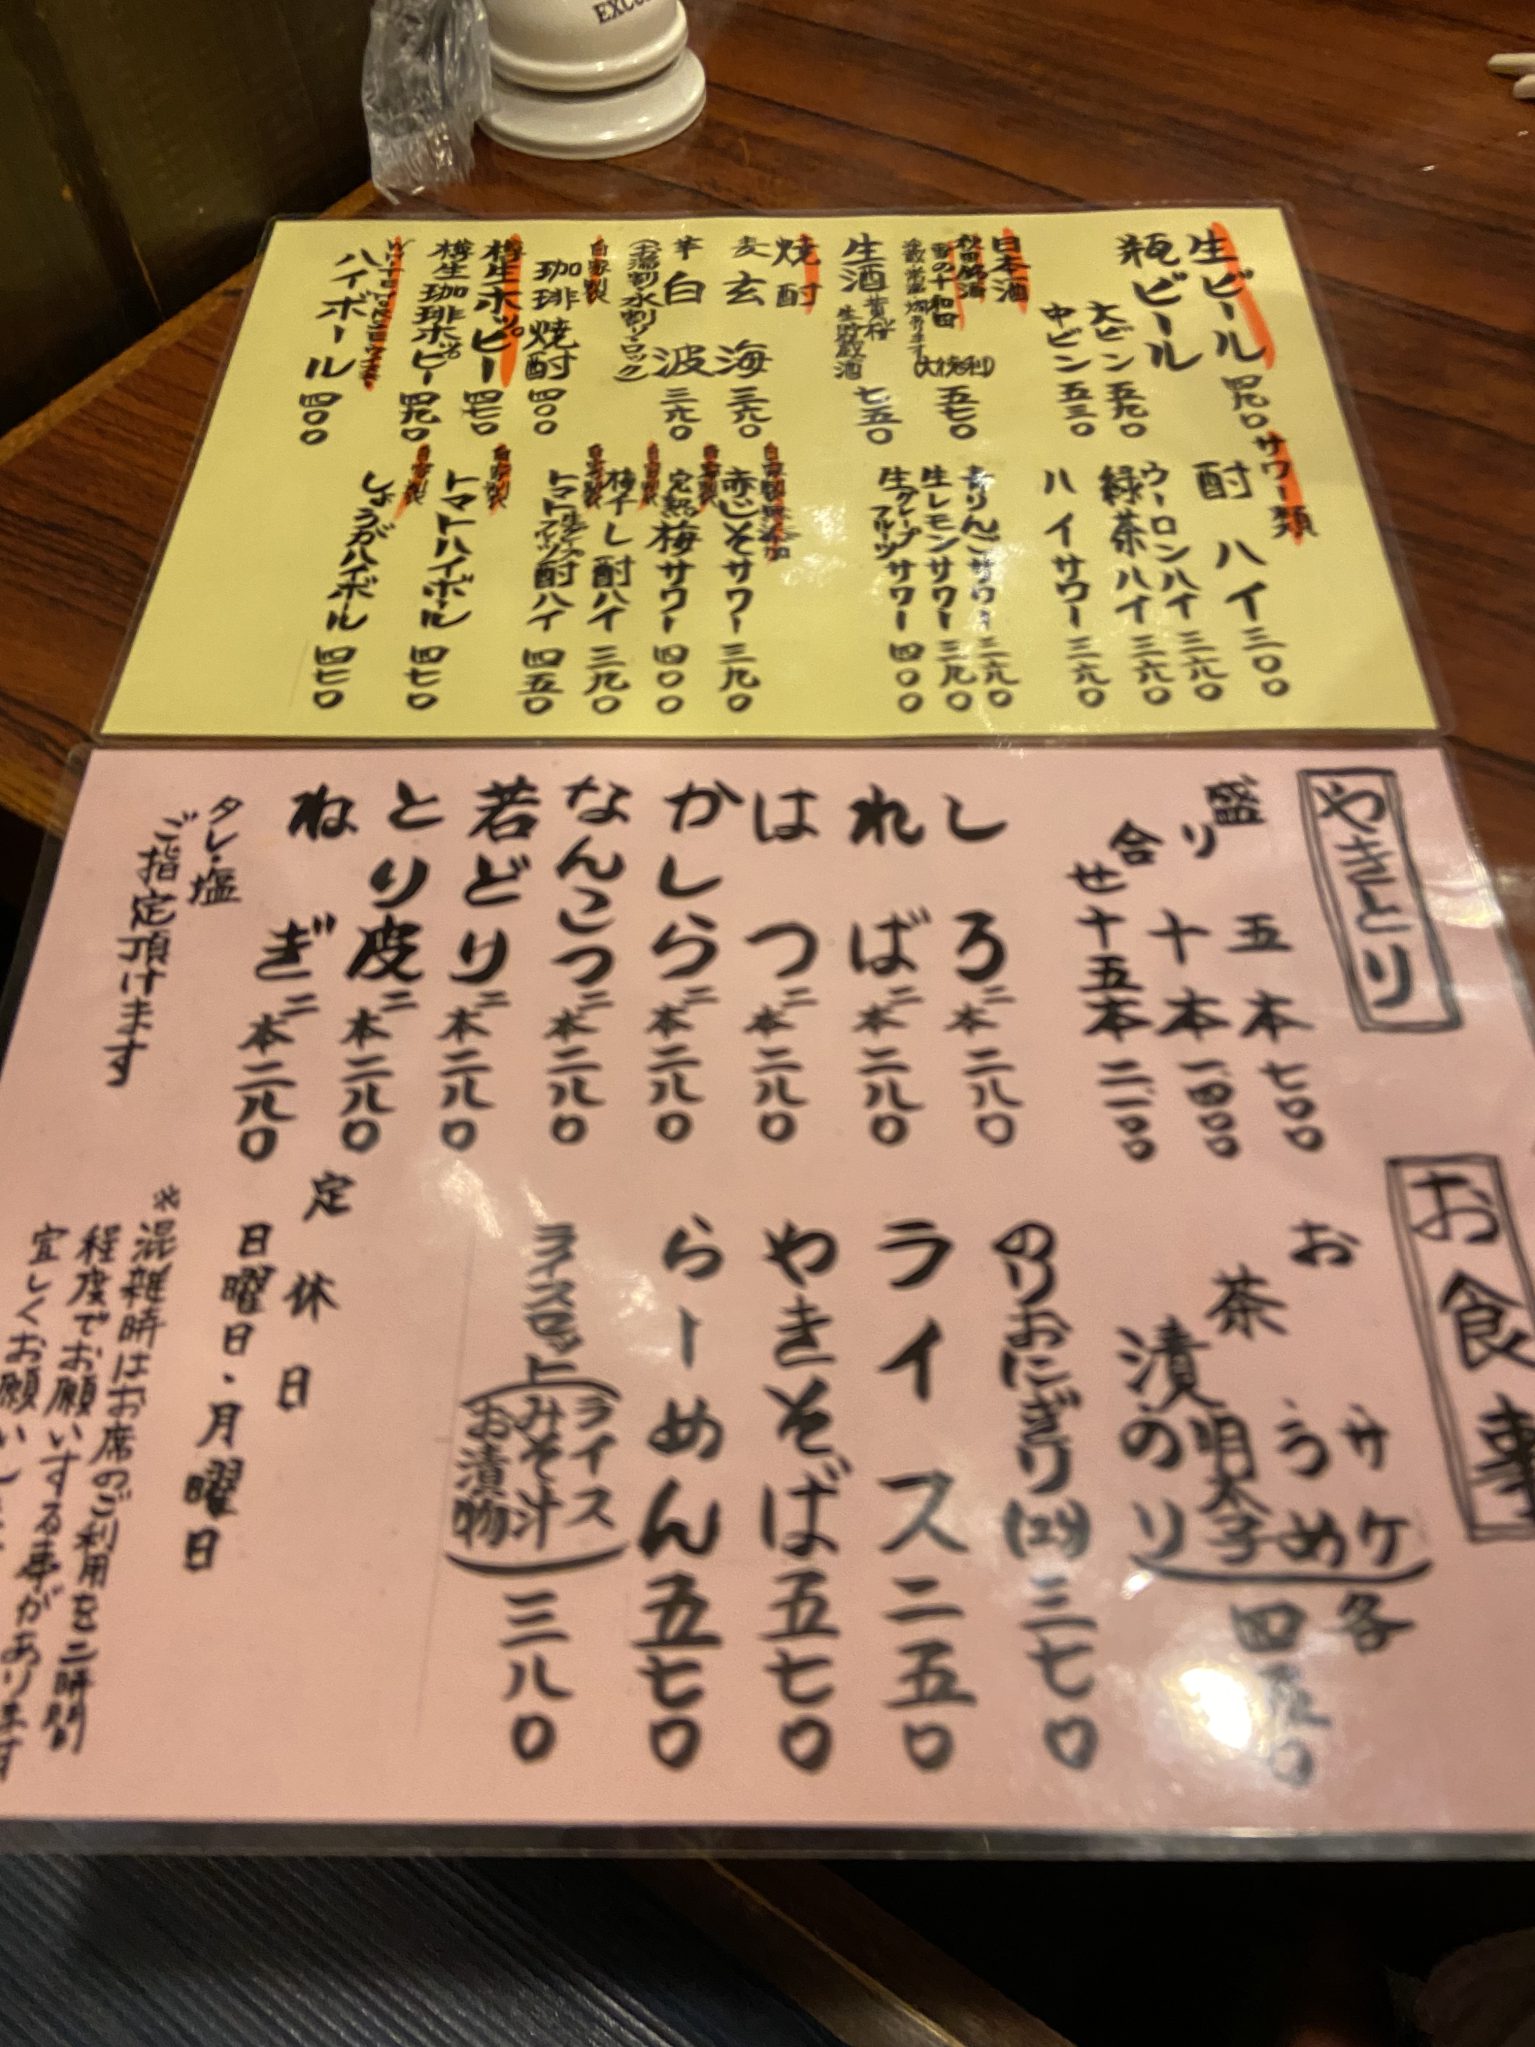 EXC
生ビール 四九〇
瓶ビール
大ビン 五九〇
中ビン 五三〇
日本酒
秋田銘酒
雪の十和田
(大徳利) 五七〇
生酒
黄桜
生貯蔵酒 七五〇
焼酎
麦 玄海 三六〇
芋 白波 三六〇
(お湯割・水割り・ロック)
自家製
珈琲焼酎 四〇〇
樽生ホッピー 四七〇
樽生珈琲ホッピー 四九〇
ハイボール 四〇〇
サワー類
酎ハイ 三〇〇
ウーロンハイ 三六〇
緑茶ハイ 三六〇
ハイサワー 三六〇
青りんごサワー 三六〇
生レモンサワー 三九〇
生グレープフルーツサワー 四〇〇
自家製無添加
赤じそサワー 三九〇
自家製
完熟梅サワー 四〇〇
自家製
梅干し酎ハイ 三九〇
自家製
トマト酎ハイ 四五〇
自家製
トマトハイボール 四七〇
自家製
しょうがハイボール 四七〇
やきとり
盛り合せ
五本 七〇〇
十本 一、四〇〇
十五本 二、一〇〇
しろ 二本 二八〇
ればー 二本 二八〇
はつ 二本 二八〇
かしら 二本 二八〇
なんこつ 二本 二八〇
若どり 二本 二八〇
とり皮 二本 二八〇
ねぎ 二本 二八〇
タレ・塩
ご指定頂けます
お食事
お茶漬
サケ
うめ
明太子
のり
各 四五〇
のりおにぎり(2ヶ) 三七〇
ライス 二五〇
やきそば 五七〇
らーめん 五七〇
ライスセット
(ライス
みそ汁
お漬物) 三八〇
定休日
日曜日・月曜日
※混雑時はお席のご利用を二時間
程度でお願いする事があります
宜しくお願いします